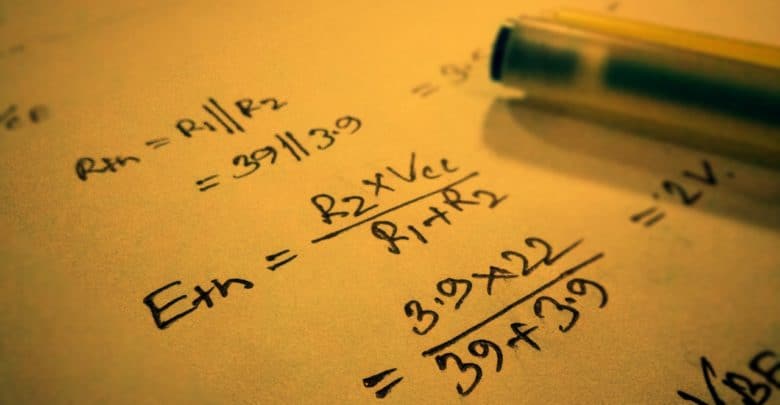 Rth = R1||R2
= 39||3.9 = 3.5
Eth = R2×Vcc / R1+R2
= 3.9×22 / 39+3.9 = 2V.
VBE